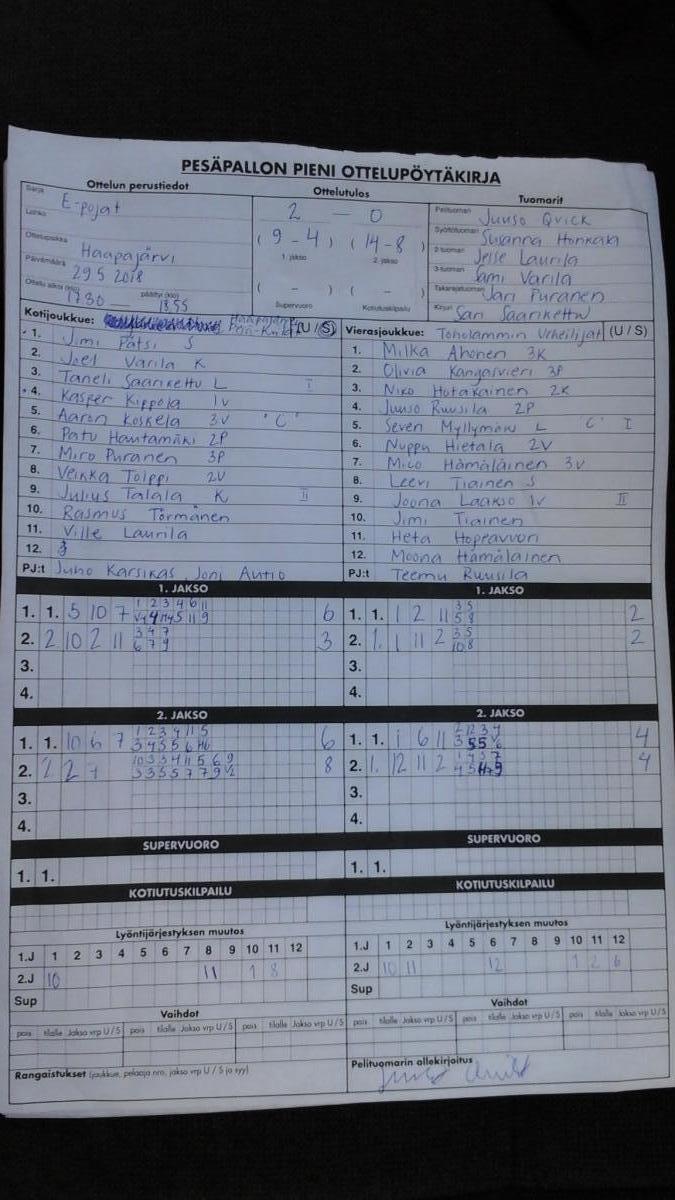 PESÄPALLON PIENI OTTELUPÖYTÄKIRJA
Ottelun perustiedot
Ottelutulos
Tuomarit
Sarja E-pojat
Lohko
Ottelupaikka Haapajärvi
Päivämäärä 29.5 2018
Ottelu alkoi (klo) 17.30 päättyi (klo) 18.55
2 - 0
( 9 - 4 ) ( 14 - 8 )
1. jakso 2. jakso
( - ) ( - )
Supervuoro Kotiutuskilpailu
Pelituomari Juuso Qvick
Syöttötuomari Susanna Honkala
2-tuomari Jesse Laurila
3-tuomari Sami Varila
Takarajatuomari Jari Puranen
Kirjuri Sari Saarikettu
Kotijoukkue: Haapajärven Pesä-Kiilat (U / S)
1. Jimi Pätsi S
2. Joel Varila K
3. Taneli Saarikettu L I
4. Kasper Kippola 1V
5. Aaron Koskela 3V "C"
6. Patu Hautamäki 2P
7. Miro Puranen 3P
8. Veikka Tolppi 2V
9. Julius Talala K II
10. Rasmus Törmänen
11. Ville Laurila
12. 3
PJ:t Juho Karsikas, Joni Autio
Vierasjoukkue: Toholammin Urheilijat (U / S)
1. Milka Ahonen 3K
2. Olivia Kangasvieri 3P
3. Niko Hotakainen 2K
4. Juuso Ruusila 2P
5. Seven Myllymäki L C' I
6. Nuppu Hietala 2V
7. Mico Hämäläinen 3V
8. Leevi Tiainen S
9. Joona Laakso 1V II
10. Jimi Tiainen
11. Heta Hopeavuori
12. Moona Hämäläinen
PJ:t Teemu Ruusila
1. JAKSO
1. 1. 5 10 7 6
2. 2 10 2 11 3
3.
4.
1. JAKSO
1. 1. 1 2 11 2
2. 1. 1 11 2 2
3.
4.
2. JAKSO
1. 1. 10 6 7 6
2. 2 2 7 8
3.
4.
2. JAKSO
1. 1. 1 6 11 4
2. 1. 12 11 2 4
3.
4.
SUPERVUORO
1. 1.
SUPERVUORO
1. 1.
KOTIUTUSKILPAILU
KOTIUTUSKILPAILU
Lyöntijärjestyksen muutos
1.J 1 2 3 4 5 6 7 8 9 10 11 12
2.J 10 11 1 8
Sup
Lyöntijärjestyksen muutos
1.J 1 2 3 4 5 6 7 8 9 10 11 12
2.J 10 11 12 1 2 6
Sup
Vaihdot
pois tilalle Jakso vrp U / S pois tilalle Jakso vrp U / S pois tilalle Jakso vrp U / S
Vaihdot
pois tilalle Jakso vrp U / S pois tilalle Jakso vrp U / S pois tilalle Jakso vrp U / S
Rangaistukset (joukkue, pelaaja nro, jakso vrp U / S ja syy)
Pelituomarin allekirjoitus